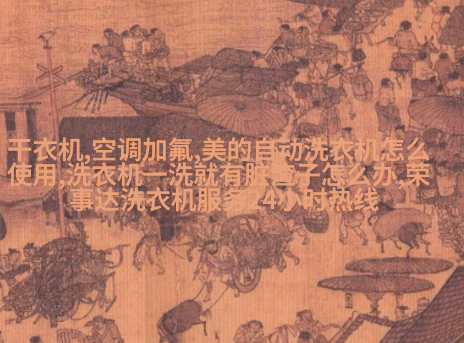 干衣机,空调加氟,美的自动洗衣机怎么
使用,洗衣机一洗就有脏渣子怎么办,荣
事达洗衣机服务24小时热线